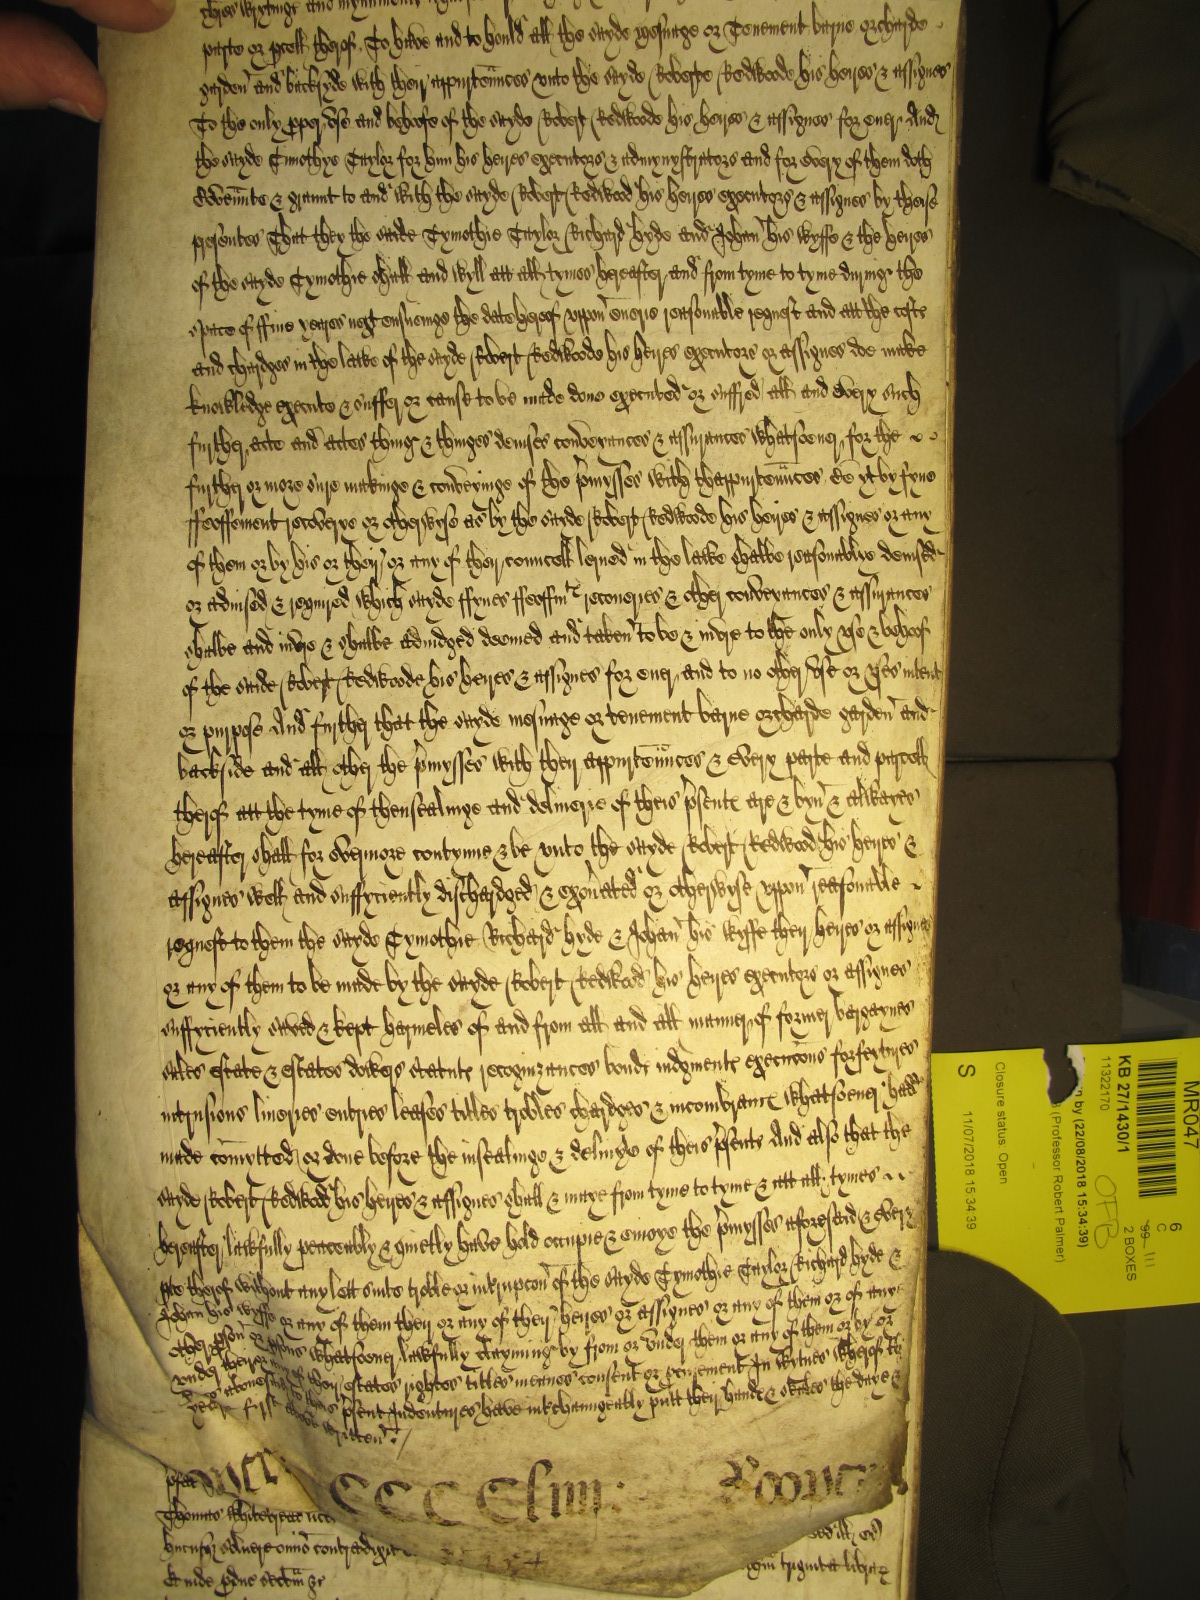 thes wrytings and mynyments
parte or pcell therof. To have and to hould all the sayde mesuage or Tenement barne orcharde
garden and backsyde with their appurtenncs unto the sayde Roberte Redwoode his heires & assignes
To the only pper use and behoofe of the sayde Robert Redwoode his heires & assignes for ever And
the sayde Timothye Taylor for him his heyres executors & admynystrators and for every of them doth
Covennte & graunt to and with the sayde Robert Redwood his heires executors & assignes by theise
presentes That they the saide Tymothie Taylor Richard Hyde and Johan his wyffe & the heires
of the sayde Tymothie shall and wyll att all tymes hereafter and from tyme to tyme during the
space of ffive yeares next ensueinge the date hereof uppon everie reasonable request and att the costs
and chardges in the lawe of the sayde Robert Redwoode his heires executors or assignes doe make
knowledge execute & suffer or cause to be made done executed or suffred all and every such
further acte and actes thing & thinges devises conveyances & assurances whatsoever for the
further or more sure makinge & conveyinge of the pmysses with thappurtennces Be yt by fyne
ffeoffement recoverye or otherwyse as by the sayde Robert Redwoode his heires & assignes or any
of them or by his or their or any of their councell lerned in the lawe shalbe reasonablie devised
or advised & required which sayde ffynes ffeoffmt recoveries & other conveyances & assurances
shalbe and inure & shalbe adiudged deemed and taken to be & inure to the only use & behoof
of the saide Robert Redwoode his heyres & assignes for ever and to no other use or uses intent
or purpose And further that the sayde mesuage or tenement barne orcharde garden and
backside and all other the pmysses with their appurtennces & every parte and parcell
therof att the tyme of thensealinge and deliverie of theis psente are & byn & alwayes
hereafter shall for evermore contynue & be unto the sayde Robert Redwood his heires &
assignes well and suffyciently dischardged & exonated or otherwyse uppon reasonable
request to them the sayde Tymothie Richard Hyde & Johan his wyffe their heires or assignes
or any of them to be made by the sayde Robert Redwood his heyres executors or assignes
suffyciently saved & kept harmeles of and from all and all manner of former bargaynes
sales estate & estates dowers statute recognizances bonde iudgmente executions forfeytures
intrusions liveries entries leases titles trobles chardges & incombrance whatsoever had
made comytted or done before the insealinge & delivye of theis psents And also that the
sayde Robert Redwood his heires & assignes shall & maye from tyme to tyme & att all tymes
hereafter lawfully peaceably & quietly have hold occupie & enioye the pmysses aforesaid & every
pte therof without any lett suite troble or intrupcon of the sayde Tymothie Taylor Richard Hyde &
Johan his wyffe or any of them their or any of their heires or assignes or any of them or of any
other pson or psons whatsoever lawfully clayming by from or under them or any of them or by or
under their or any of their estates rightes titles meanes consent or pcurement In wytnes wherof
psent Indentures have interchaungeably putt their hande & seales the daye &
yere first above written
CCCC Eliii: Roove
Thomas Whitecreac
contradixit
triginta libras
& inde pdue sectm
MR047
6
C
99-111
2 BOXES
KB 27/1430/1
11322170
OFB
n by (22/08/2018 15:34:39)
(Professor Robert Palmer)
Closure status: Open
S 11/07/2018 15:34:39